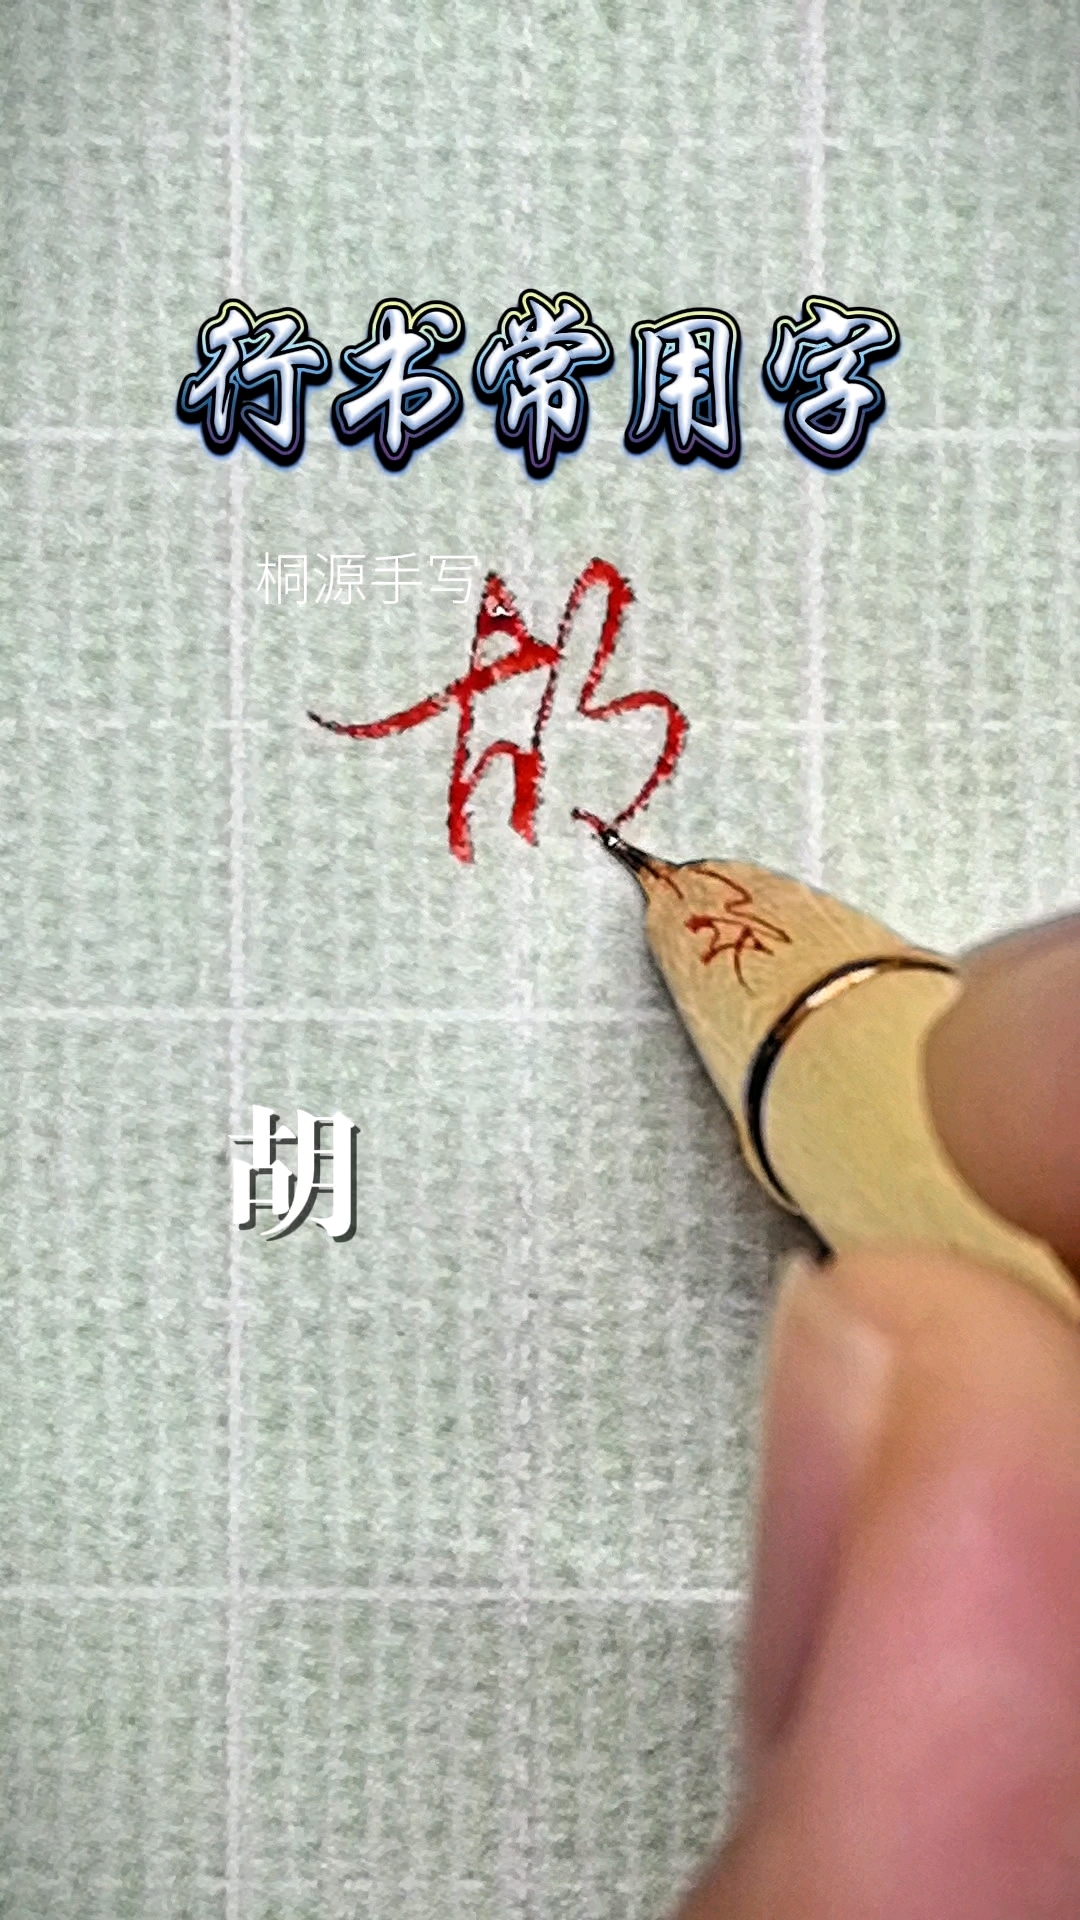 行书常用字
桐源手写
胡
胡